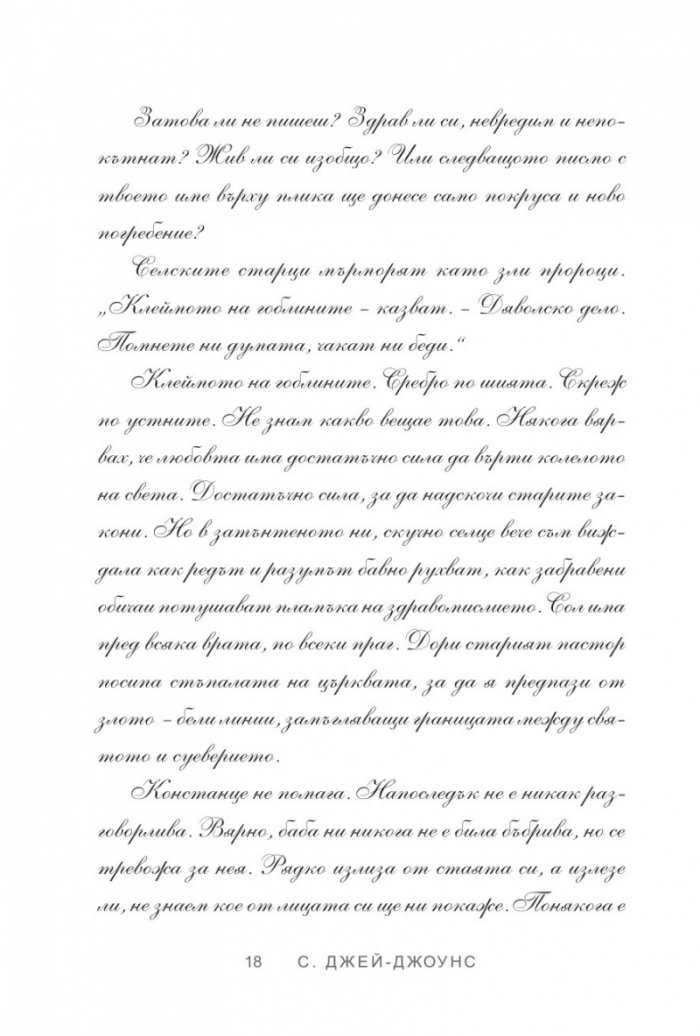 Затова ли не пишеш? Здрав ли си, невредим и непо-
кътнат? Жив ли си изобщо? Или следващото писмо с
твоето име върху плика ще донесе само покруса и ново
погребение?
Селските старци мърморят като зли пророци.
„Клеймото на гоблините – казват. – Дяволско дело.
Помнете ни думата, чакат ни беди.“
Клеймото на гоблините. Сребро по шията. Скреж
по устните. Не знам какво вещае това. Някога вяр-
вах, че любовта има достатъчно сила да върти колелото
на света. Достатъчно сила, за да надскочи старите за-
кони. Но в затънтеното ни, скучно селце вече съм виж-
дала как редът и разумът бавно рухват, как забравени
обичаи потушават пламъка на здравомислието. Сол има
пред всяка врата, по всеки праг. Дори старият пастор
посипа стъпалата на църквата, за да я предпази от
злото – бели линии, замъгляващи границата между свя-
тото и суеверието.
Констанце не помага. Напоследък не е никак раз-
говорлива. Вярно, баба ни никога не е била бъбрива, но се
тревожа за нея. Рядко излиза от стаята си, а излезе
ли, не знаем кое от лицата си ще ни покаже. Понякога е
18 С. ДЖЕЙ-ДЖОУНС